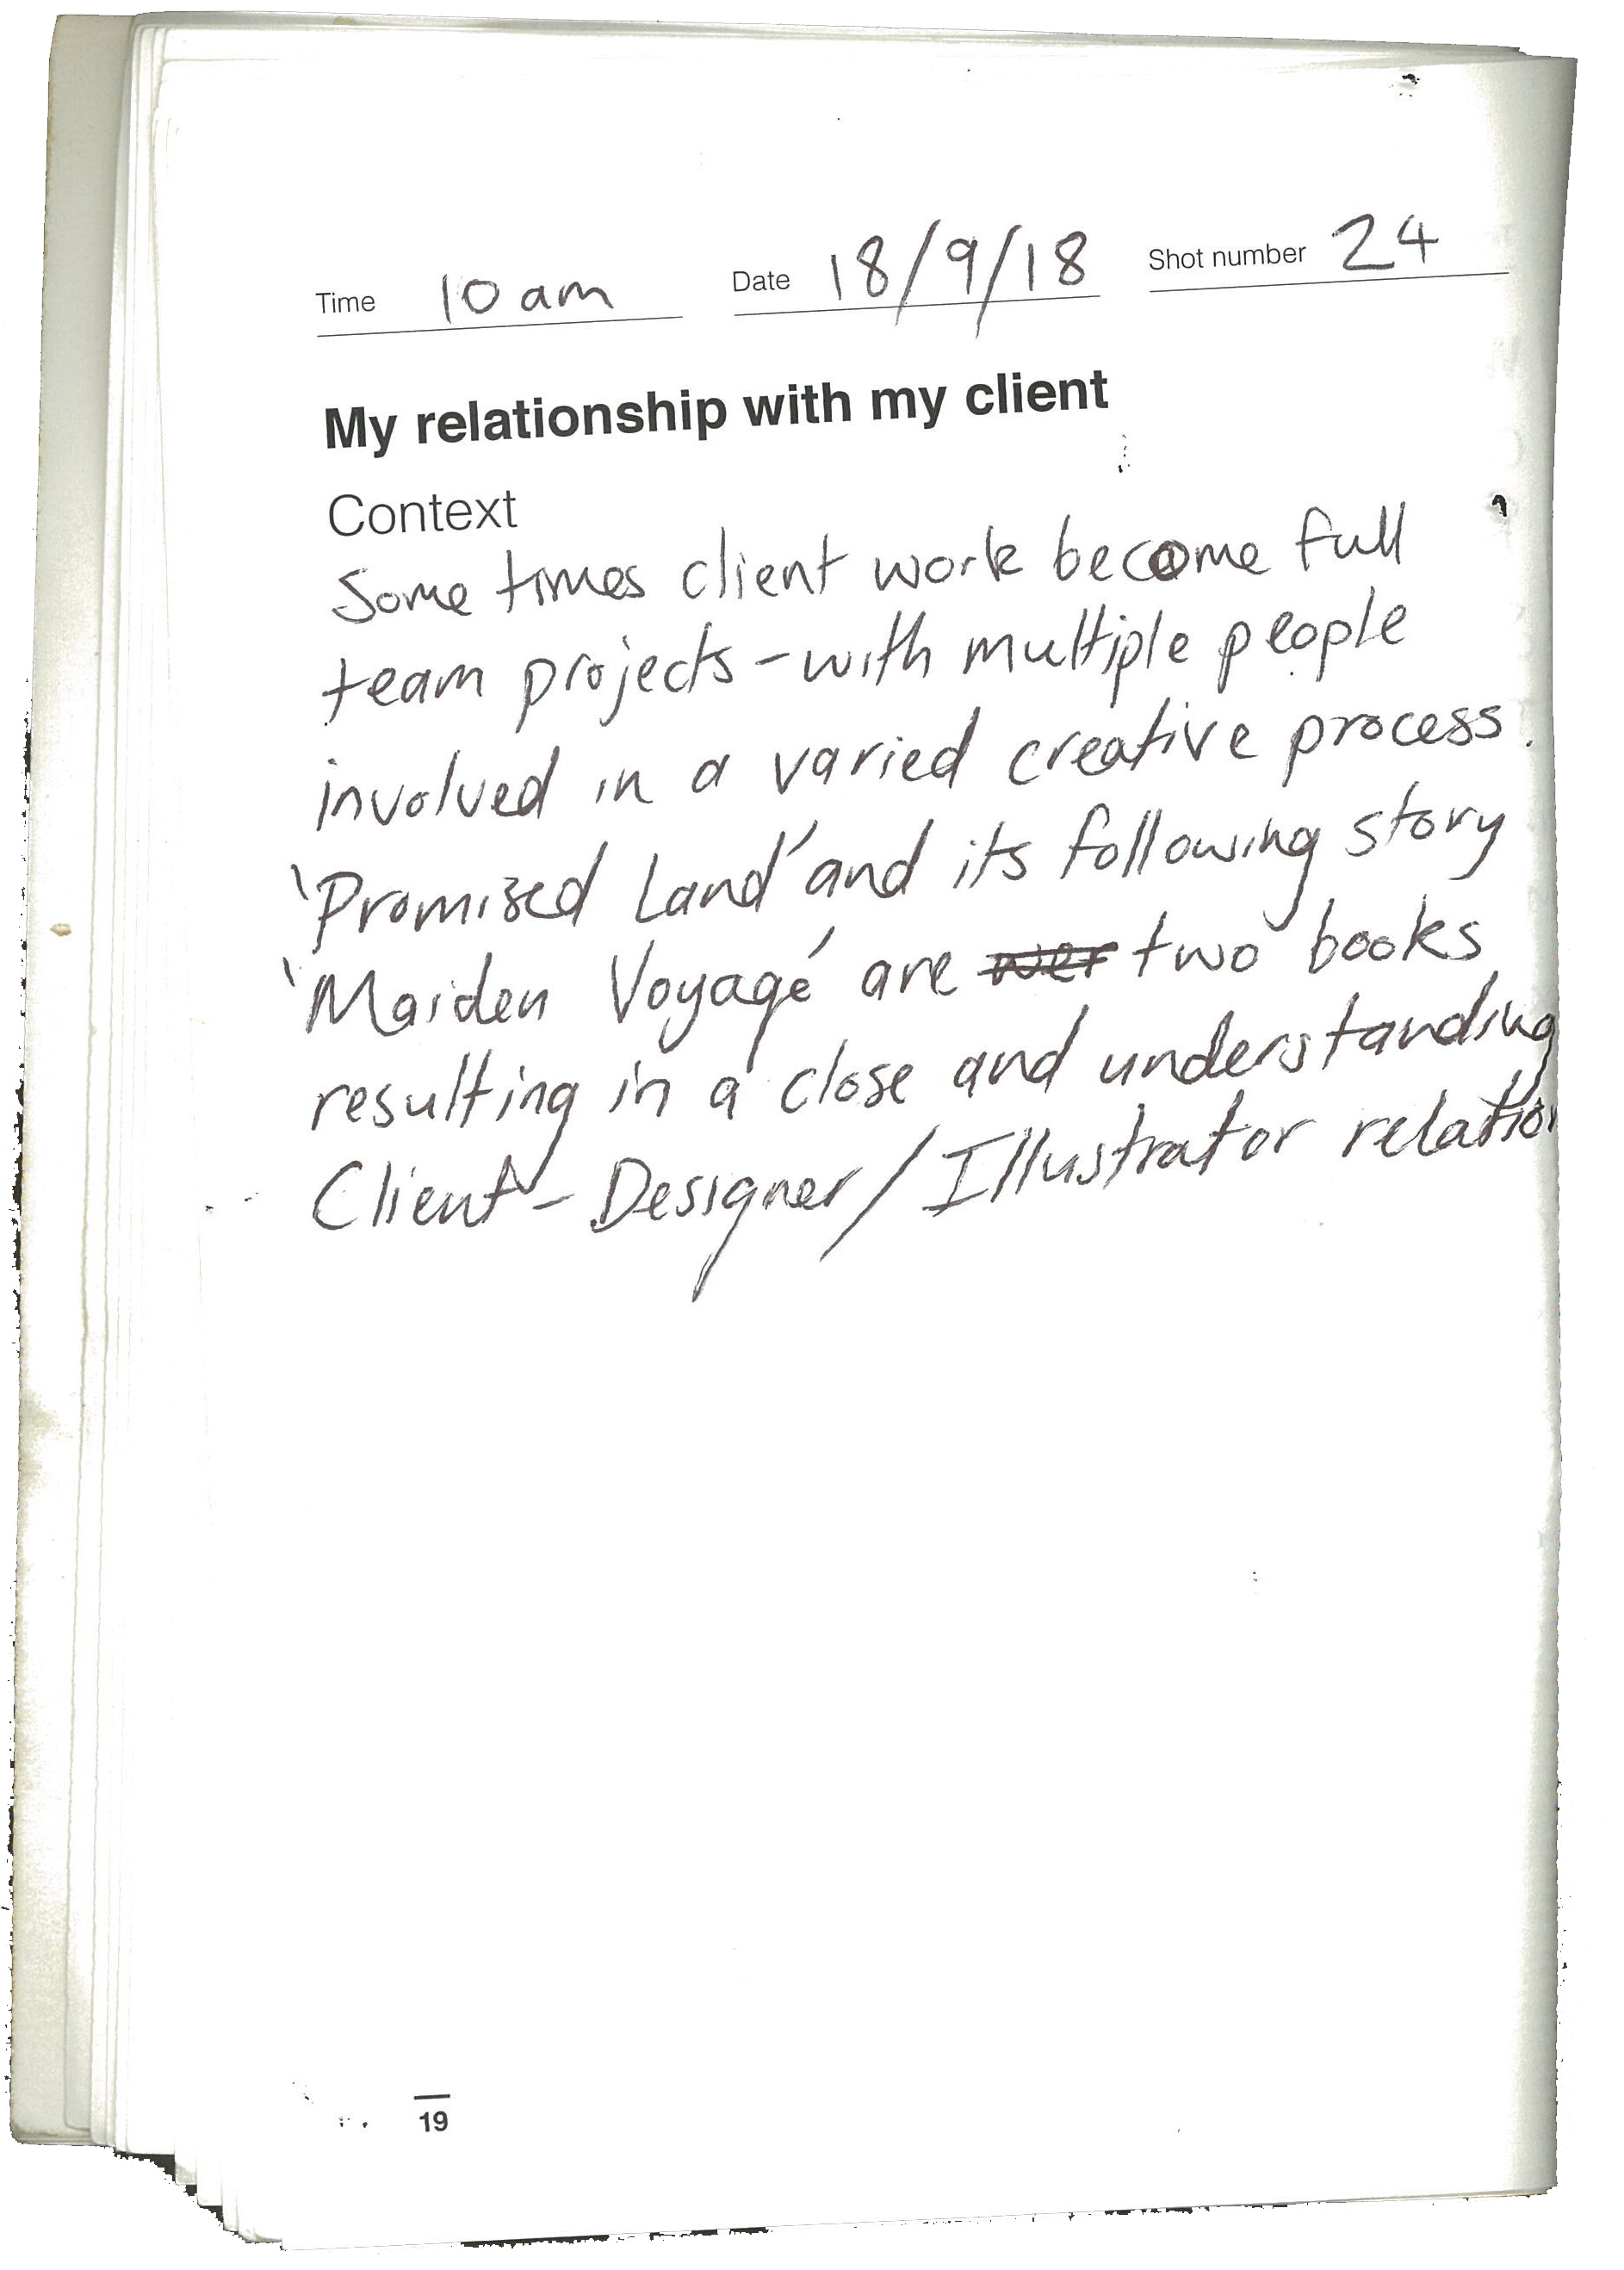 Time 10 am Date 18/9/18 Shot number 24
My relationship with my client
Context
Some times client work become full
team projects - with multiple people
involved in a varied creative process.
'Promised Land' and its following story
'Maiden Voyage' are wer two books
resulting in a close and understanding
Client - Designer / Illustrator relation
19